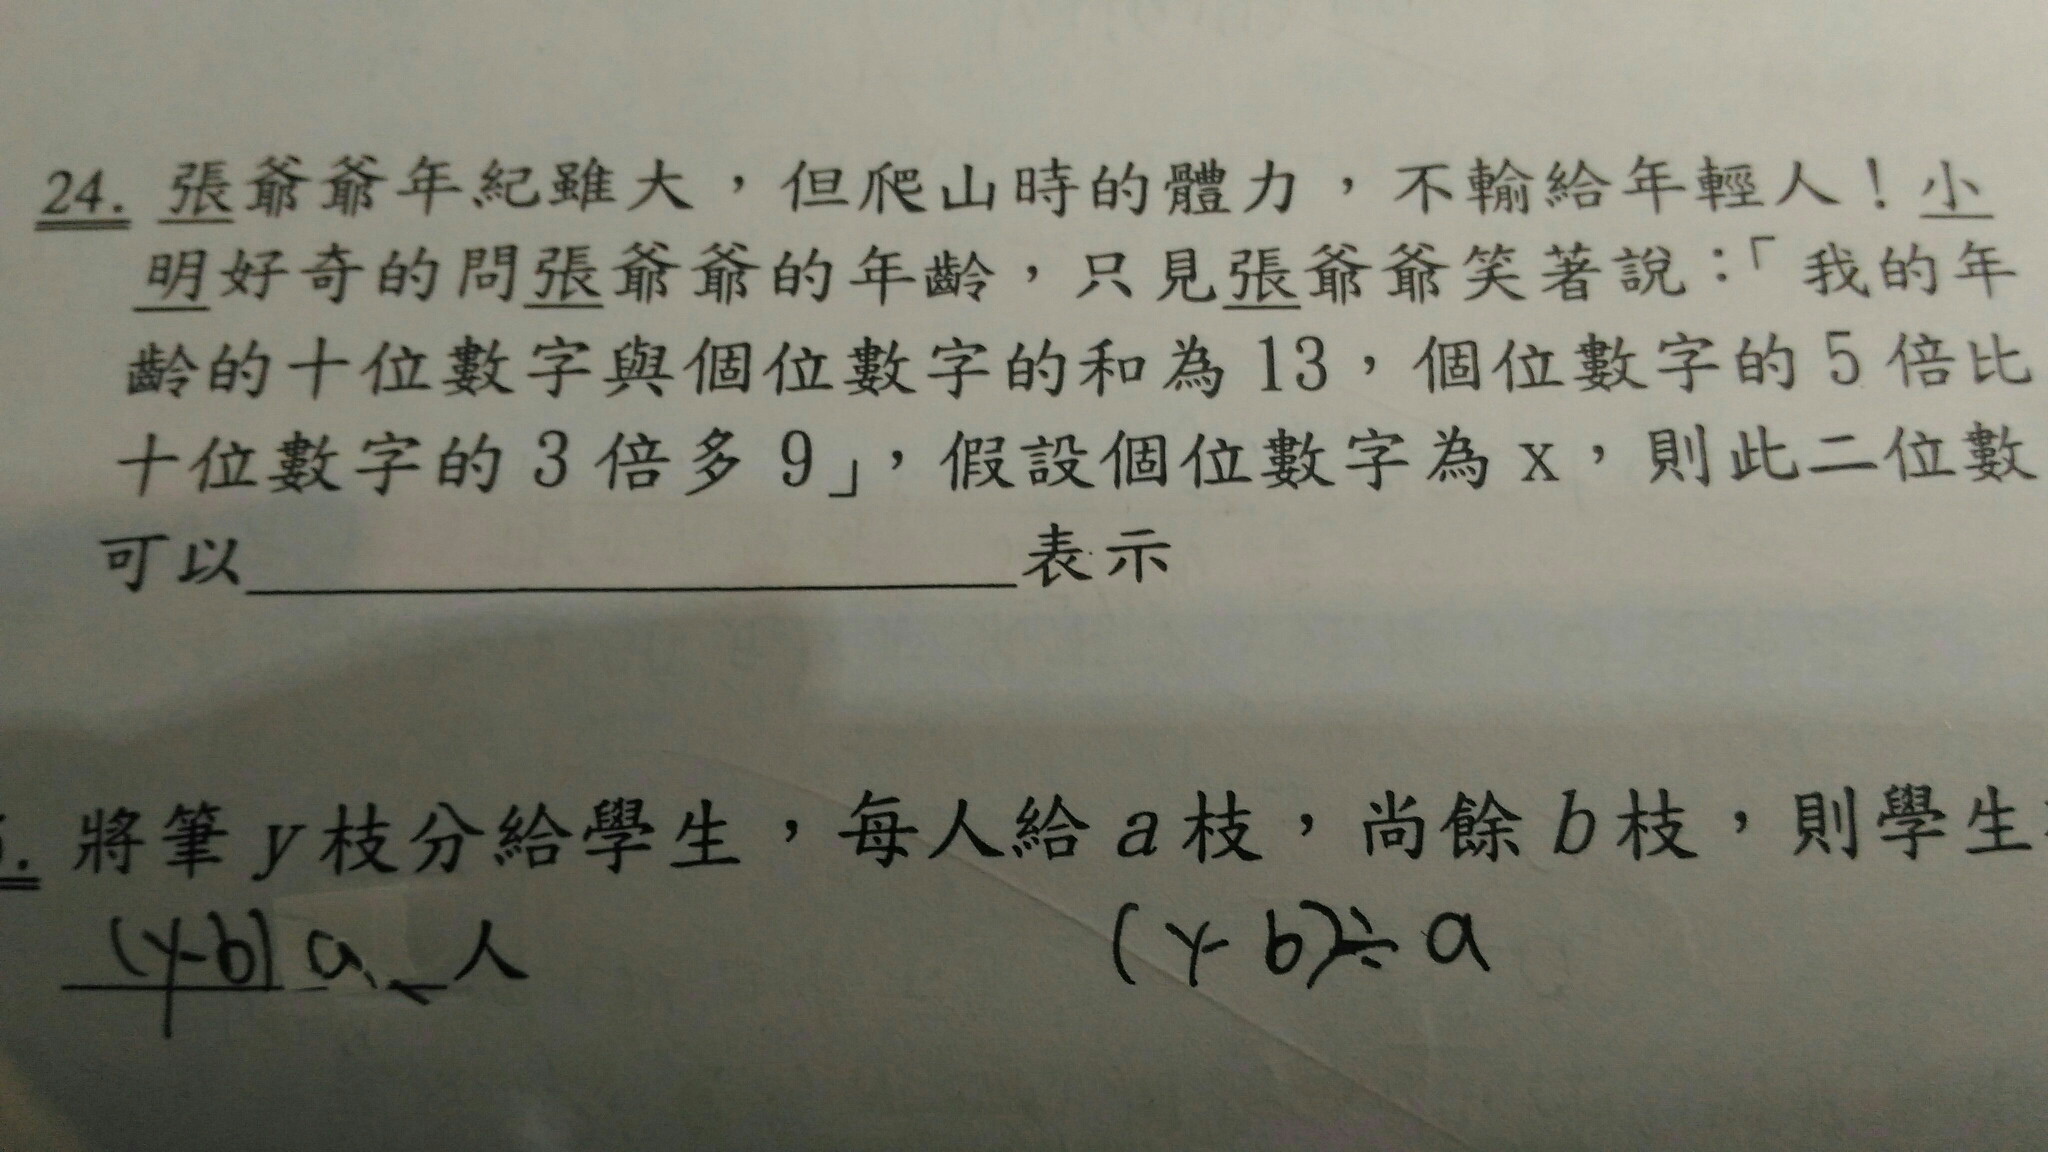 24. 張爺爺年紀雖大，但爬山時的體力，不輸給年輕人！小
明好奇的問張爺爺的年齡，只見張爺爺笑著說：「我的年
齡的十位數字與個位數字的和為13，個位數字的5倍比
十位數字的3倍多9」，假設個位數字為x，則此二位數
可以＿＿＿＿＿＿＿＿表示
將筆y枝分給學生，每人給a枝，尚餘b枝，則學生
(y-b) a 人 (y-b)÷a